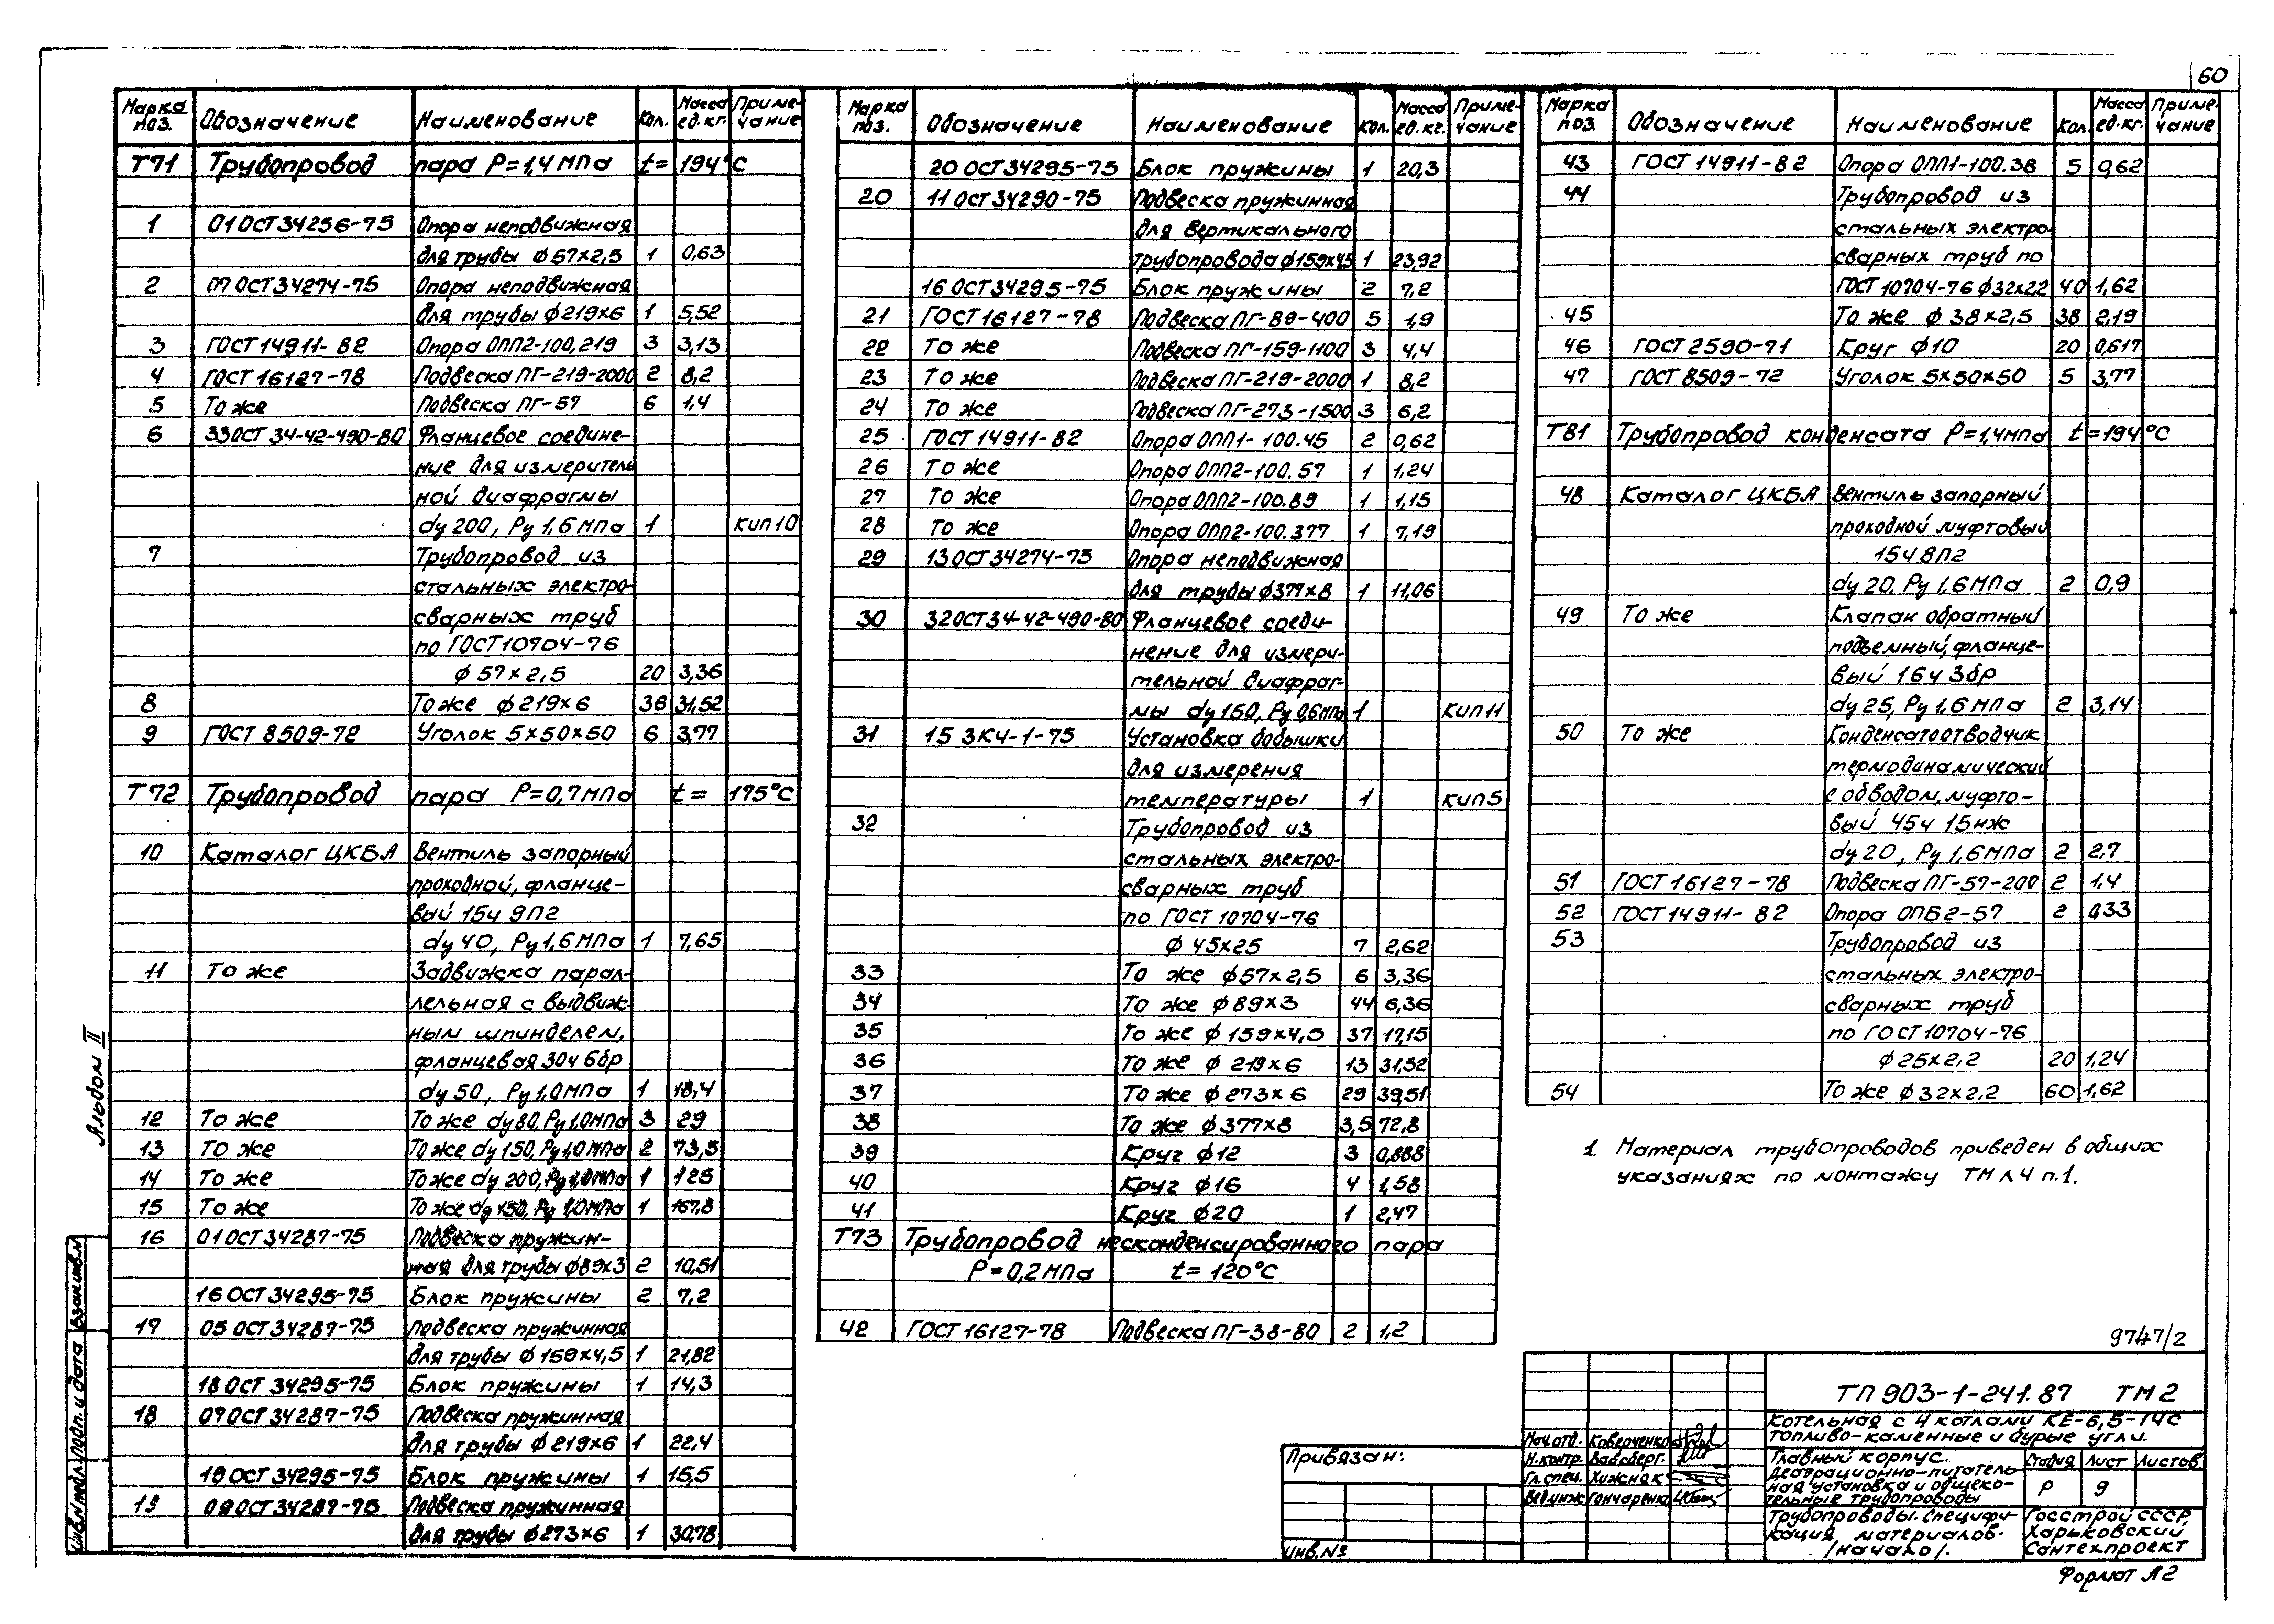 60
Марка поз. Обозначение Наименование Кол. Масса ед.кг. Приме-чание
Т71 Трубопровод пара Р=1,4МПа t=194°С
1 01 ОСТ 34256-75 Опора неподвижная
для трубы ф57х2,5 1 0,63
2 07 ОСТ 34274-75 Опора неподвижная
для трубы ф219х6 1 5,52
3 ГОСТ 14911-82 Опора ОПП2-100,219 3 3,13
4 ГОСТ 16127-78 Подвеска ПГ-219-2000 2 8,2
5 То же Подвеска ПГ-57 6 1,4
6 33ОСТ 34-42-490-80 Фланцевое соедине-
ние для измеритель
ной диафрагмы
dу 200, Ру 1,6 МПа 1 КИП10
7 Трубопровод из
стальных электро-
сварных труб
по ГОСТ10704-76
ф 57х2,5 20 3,36
8 То же ф 219х6 36 31,52
9 ГОСТ 8509-72 Уголок 5х50х50 6 3,77
Т72 Трубопровод пара Р=0,7МПа t= 175°С
10 Каталог ЦКБА Вентиль запорный
проходной, фланце-
вый 15ч 9П2
dу 40, Ру1,6МПа 1 7,65
11 То же Задвижка парал-
лельная с выдвиж-
ным шпинделем,
фланцевая 30ч 6бр
dу 50, Ру1,0МПа 1 18,4
12 То же То же dу80, Ру1,0МПа 3 29
13 То же То же dу 150, Ру1,0МПа 2 73,5
14 То же То же dу 200, Ру1,0МПа 1 125
15 То же То же dу 150, Ру 1,0МПа 1 167,8
16 01 ОСТ 34287-75 Подвеска пружин-
ная для трубы ф89х3 2 10,51
16 ОСТ 34295-75 Блок пружины 2 7,2
17 05 ОСТ 34287-75 Подвеска пружинная
для трубы ф 159х4,5 1 21,82
18 ОСТ 34295-75 Блок пружины 1 14,3
18 07 ОСТ 34287-75 Подвеска пружинная
для трубы ф 219х6 1 22,4
19 ОСТ 34295-75 Блок пружины 1 15,5
19 08 ОСТ 34287-75 Подвеска пружинная
для трубы ф273х6 1 30,78
Марка поз. Обозначение Наименование Кол. Масса ед.кг. Приме-чание
20 ОСТ 34295-75 Блок пружины 1 20,3
20 11 ОСТ 34290-75 Подвеска пружинная
для вертикального
трубопровода ф159х4,5 1 23,92
16 ОСТ 34295-75 Блок пружины 2 7,2
21 ГОСТ 16127-78 Подвеска ПГ-89-400 5 1,9
22 То же Подвеска ПГ-159-1100 3 4,4
23 То же Подвеска ПГ-219-2000 1 8,2
24 То же Подвеска ПГ-273-1500 3 6,2
25 ГОСТ 14911-82 Опора ОПП1-100.45 2 0,62
26 То же Опора ОПП2-100.57 1 1,24
27 То же Опора ОПП2-100.89 1 1,15
28 То же Опора ОПП2-100.377 1 7,19
29 13 ОСТ 34274-75 Опора неподвижная
для трубы ф377х8 1 11,06
30 32ОСТ34-42-490-80 Фланцевое соеди-
нение для измери-
тельной диафраг-
мы dу 150, Ру 0,6МПа 1 КИП11
31 15 ЗК4-1-75 Установка бобышки
для измерения
температуры 1 КИП5
32 Трубопровод из
стальных электро-
сварных труб
по ГОСТ 10704-76
ф 45х25 7 2,62
33 То же ф57х2,5 6 3,36
34 То же ф89х3 44 6,36
35 То же ф 159х4,5 37 17,15
36 То же ф 219х6 13 31,52
37 То же ф 273х6 29 39,51
38 То же ф377х8 3,5 72,8
39 Круг ф12 3 0,888
40 Круг ф16 4 1,58
41 Круг ф20 1 2,47
Т73 Трубопровод несконденсированного пара
Р=0,2МПа t=120°С
42 ГОСТ 16127-78 Подвеска ПГ-38-80 2 1,2
Марка поз. Обозначение Наименование Кол. Масса ед.кг. Приме-чание
43 ГОСТ 14911-82 Опора ОПП1-100.38 5 0,62
44 Трубопровод из
стальных электро-
сварных труб по
ГОСТ 10704-76 ф32х22 40 1,62
45 То же ф 38х2,5 38 2,19
46 ГОСТ 2590-71 Круг ф10 20 0,617
47 ГОСТ 8509-72 Уголок 5х50х50 5 3,77
Т81 Трубопровод конденсата Р=1,4МПа t=194°С
48 Каталог ЦКБА Вентиль запорный
проходной муфтовый
15ч 8П2
dу 20, Ру 1,6МПа 2 0,9
49 То же Клапан обратный
подъемный, фланце-
вый 16ч 3бр
dу 25, Ру 1,6 МПа 2 3,14
50 То же Конденсатоотводчик
термодинамический
с обводом, муфто-
вый 45ч 15нж
dу 20, Ру 1,6МПа 2 2,7
51 ГОСТ 16127-78 Подвеска ПГ-57-200 2 1,4
52 ГОСТ 14911-82 Опора ОПБ2-57 2 0,33
53 Трубопровод из
стальных электро-
сварных труб
по ГОСТ 10704-76
ф25х2,2 20 1,24
54 То же ф 32х2.2 60 1,62
1. Материал трубопроводов приведен в общих
указаниях по монтажу ТМ л4 п.1.
9747/2
ТП 903-1-241.87 ТМ 2
Котельная с 4 котлами КЕ-6,5-14С
топливо-каменные и бурые угли.
Нач.отд. Коверченко
Н.контр. Вайсберг
Гл.спец. Хижняк
Вед.инж Гончаренко
Главный корпус.
Деаэрационно-питатель
ная установка и общеко-
тельные трубопроводы
Стадия Лист Листов
Р 9
Трубопроводы. Специфи-
кация материалов.
/начало/.
Госстрой СССР
Харьковский
Сантехпроект
Привязан:
Инв.№
Формат А2
Альбом II
Инв.№ подл. Подп. и дата Взам.инв.№